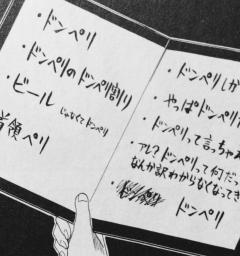 ・ドンペリ
・ドンペリのドンペリ割り
・ビール
じゃなくてドンペリ
首領ペリ
・ドンペリしか
・やっぱドンペリ
・ドンペリって言っちゃあ
・アレ?ドンペリって何だっ
なんか訳わからなくなってき
ドンペリ